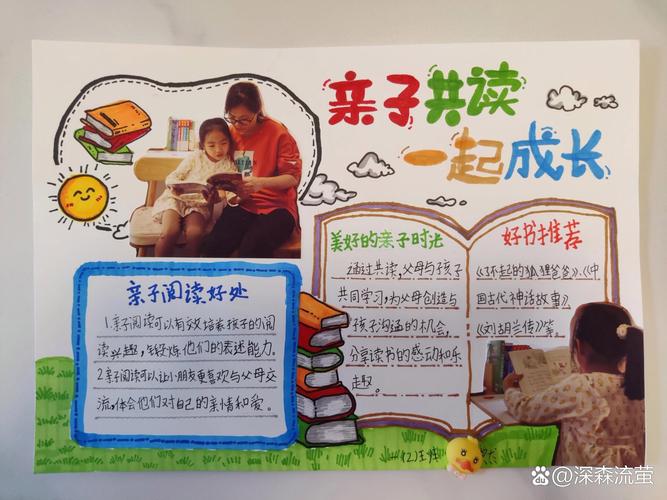 亲子共读
一起成长
亲子阅读好处
1.亲子阅读可以有效培养孩子的阅
读兴趣，锻炼他们的表述能力。
2.亲子阅读可以让小朋友更喜欢与父母交
流，体会他们对自己的亲情和爱。
美好的亲子时光
通过共读，父母与孩子
共同学习，为父母创造与
孩子沟通的机会，
分享读书的感动和乐
趣。
好书推荐
《了不起的狐狸爸爸》、《中
国古代神话故事》
《刘胡兰传》等。
百度 @深森流萤